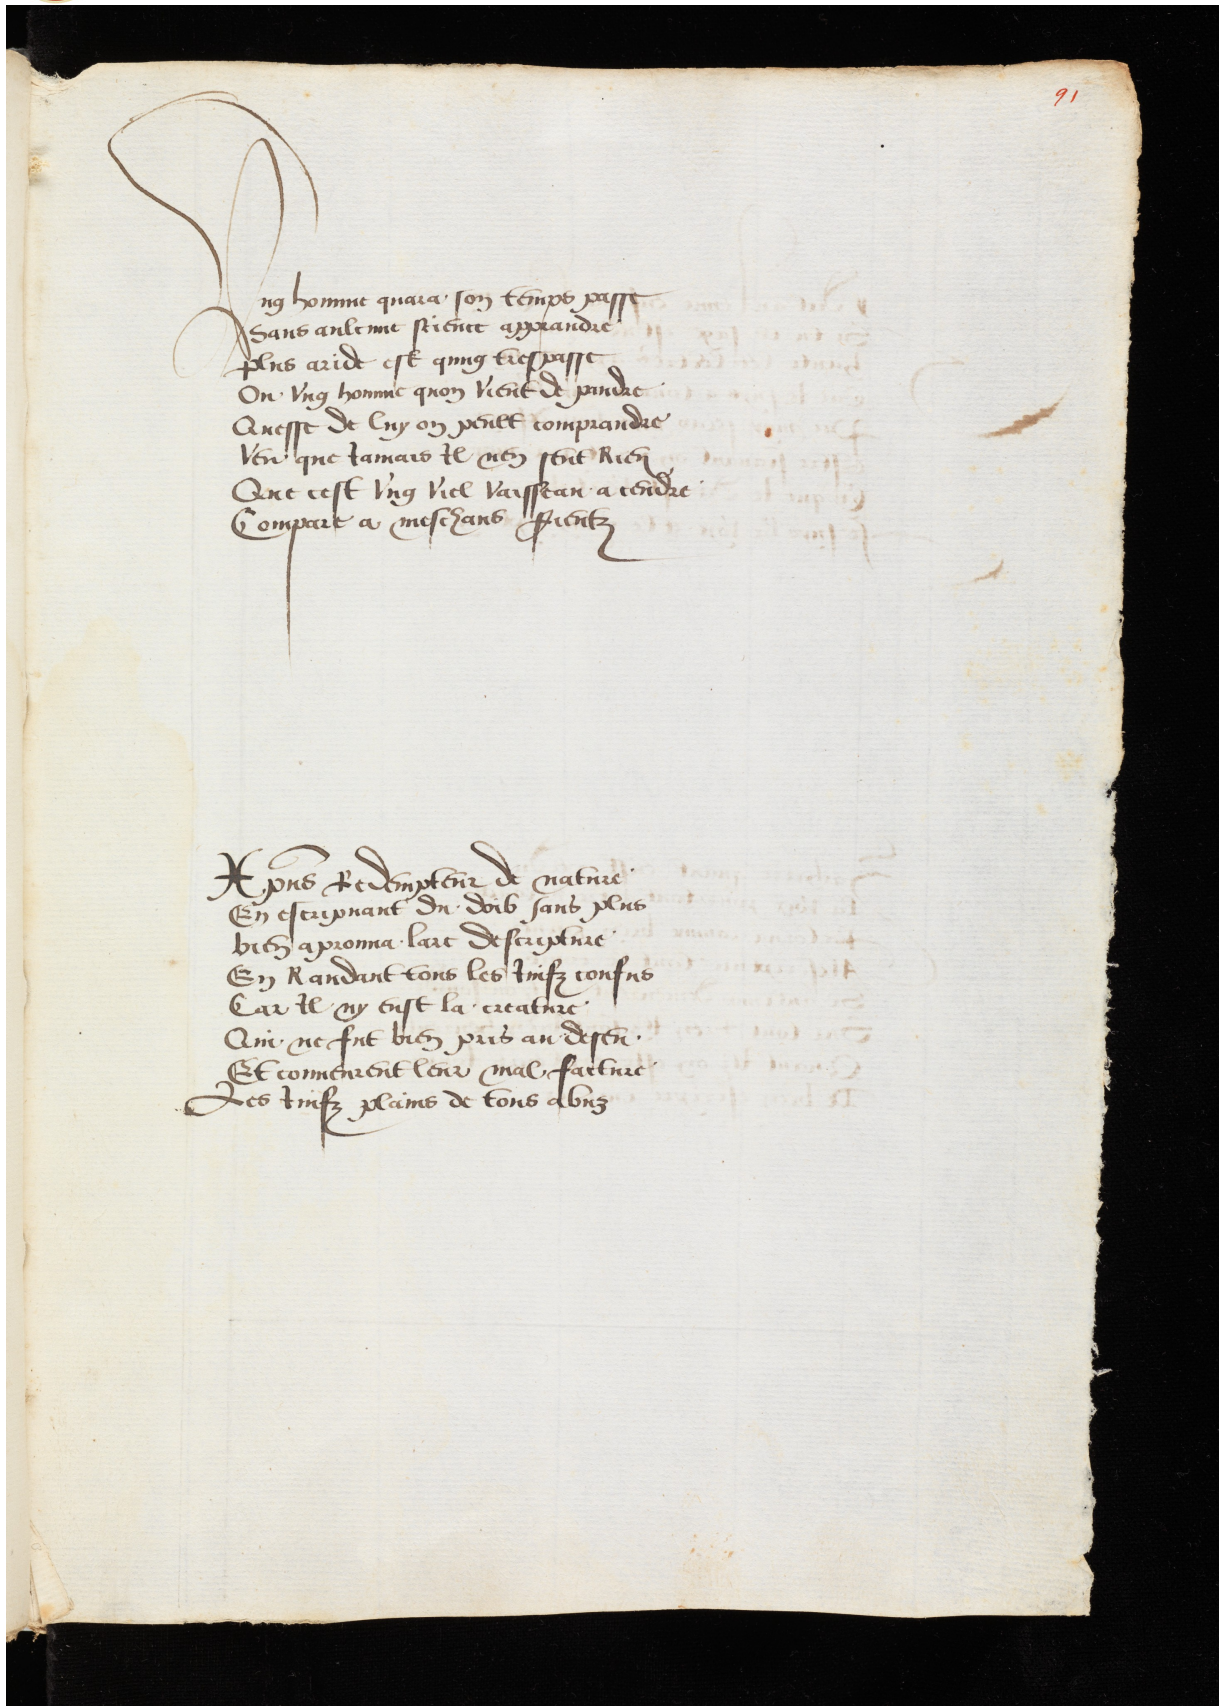 91
Ung homme quara son temps passe
Sans aulcune science apprandre
Plus aride est qung trespasse
Ou ung homme quon vient de pandre
Quesse de luy on peult comprandre
Veu que Jamais Il nen sent Rien
Que cest ung viel vaisseau a cendre
Compare a meschans fientz
Xpus Redempteur de nature
En escripuant du doib sans plus
bien aprouua lart descripture
En Randant tous les Juifz confus
Car Il ny eust la creature
Qui ne fut bien pris au
Et congneurent leur mal facture
Les Juifz plains de tous abuz